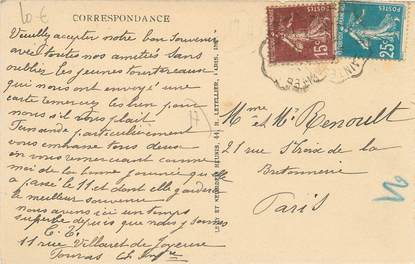 10 €
CORRESPONDANCE
Veuillez accepter notre bon Souvenir
avec toutes nos amitiés sans
oublier les jeunes tourtereaux
qui nous ont envoyé d'une
carte remerciez les bien pour
nous s'il vous plait
Fernande particulièrement
vous embrasse tous deux
en vous remerciant comme
moi de la bonne journée qu'elle
a passé le 11 et dont elle gardera
le meilleur souvenir
nous avons ici un temps
superbe depuis que nous y sommes
11 rue Villaret de Joyeuse
LEVY ET NEURDEIN REUNIS, 44, R. LETELLIER, PARIS
POSTES
15c
POSTES
25c
Mme et Mr Renoult
21 rue Ste Croix de la
Bretonnerie
Paris